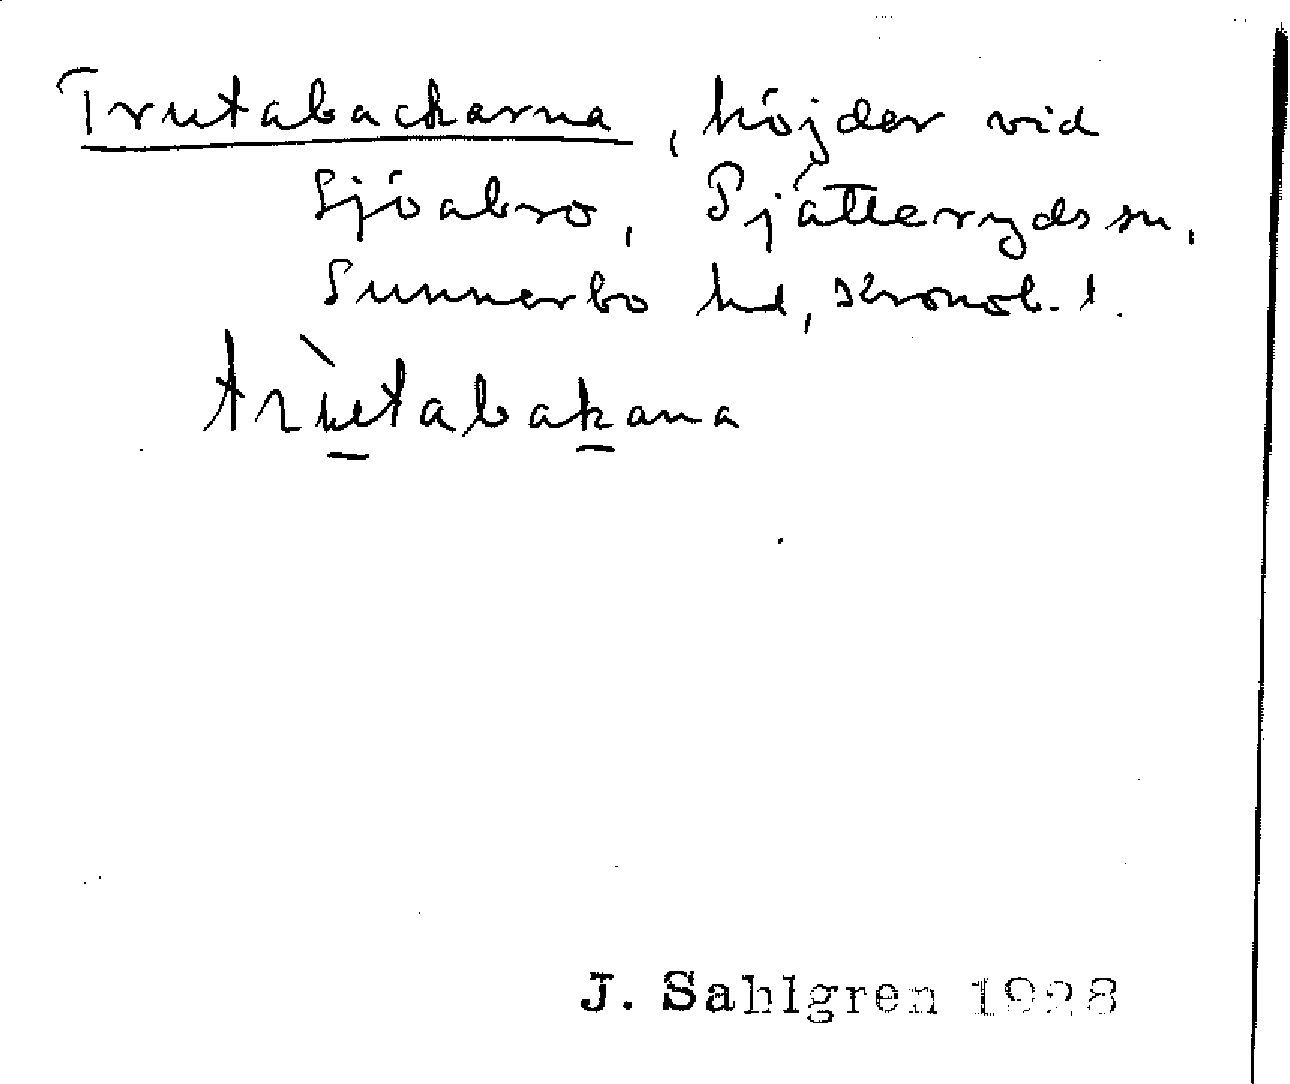 Trutabackarna, höjder vid
Sjöabro, Pjätterydssn,
Sunnerbo hd, Kronob. l.
trùtabakana
J. Sahlgren 1928